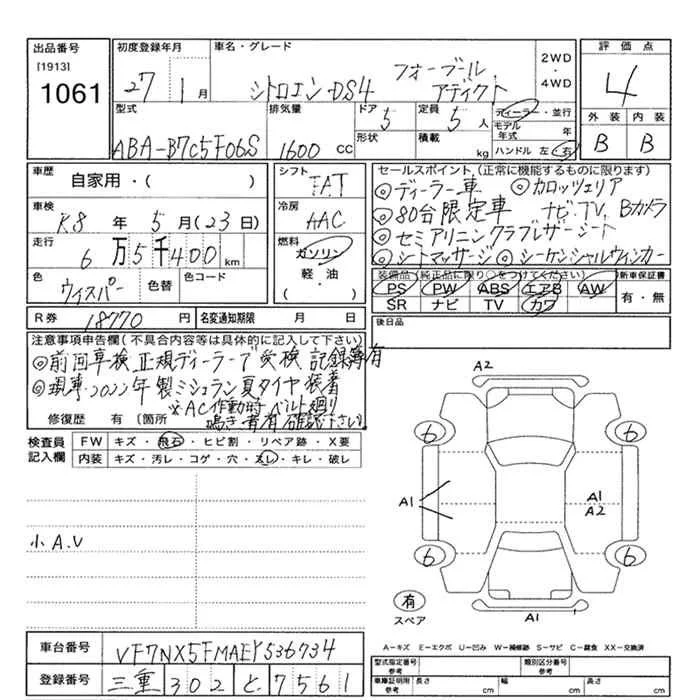 出品番号
[1913]
1061
初度登録年月
27 1月
車名・グレード
シトロエン・DS4 フォーブール アディクト
2WD
・
4WD
評価点
4
外装 内装
B B
型式
ABA-B7C5F06S
排気量
1600 CC
ドア
5
形状
定員
5人
積載
kg
ディーラー・並行
モデル年式 年
ハンドル 左・右
車歴
自家用・( )
車検
R8年5月(23日)
走行
6万5千400km
色
ウィスパー
色替
色コード
シフト
FAT
冷房
AAC
燃料
ガソリン
軽・油
( )
セールスポイント(正常に機能するものに限ります)
◎ディーラー車 ◎カロッツェリア
◎80台限定車 ナビ・TV、Bカメラ
◎セミアリニンクラブレザーシート
◎シートマッサージ ◎シーケンシャルウィンカー
装備品(純正品に限り○をつけてください)
PS PW ABS エアB AW
SR ナビ TV カワ
新車保証書
有・無
R券 18770円
名変通知期限 月 日
後日品
注意事項申告欄(不具合内容等は具体的に記入して下さい)
◎前回車検正規ディーラーで受検 記録簿有
◎現車2022年製ミシュラン夏タイヤ装着
※AC作動時ベルト廻り
鳴き音有 確認下さい。
修復歴 有〔箇所
検査員
記入欄
FW キズ・飛石・ヒビ割・リペア跡・X要
内装 キズ・汚レ・コゲ・穴・スレ・キレ・破レ
小A.U
A2
6 6
A1
A1
A2
6 6
有
スペア
A1
車台番号
VF7NX5FMAEY536734
登録番号
三重 302 と 7561
A-キズ E-エクボ U-凹み W-補修跡 S-サビ C-腐食 XX-交換済
型式指定番号
参考
類別区分番号
参考
車庫証明用
参考
長さ cm
幅 cm
高さ cm